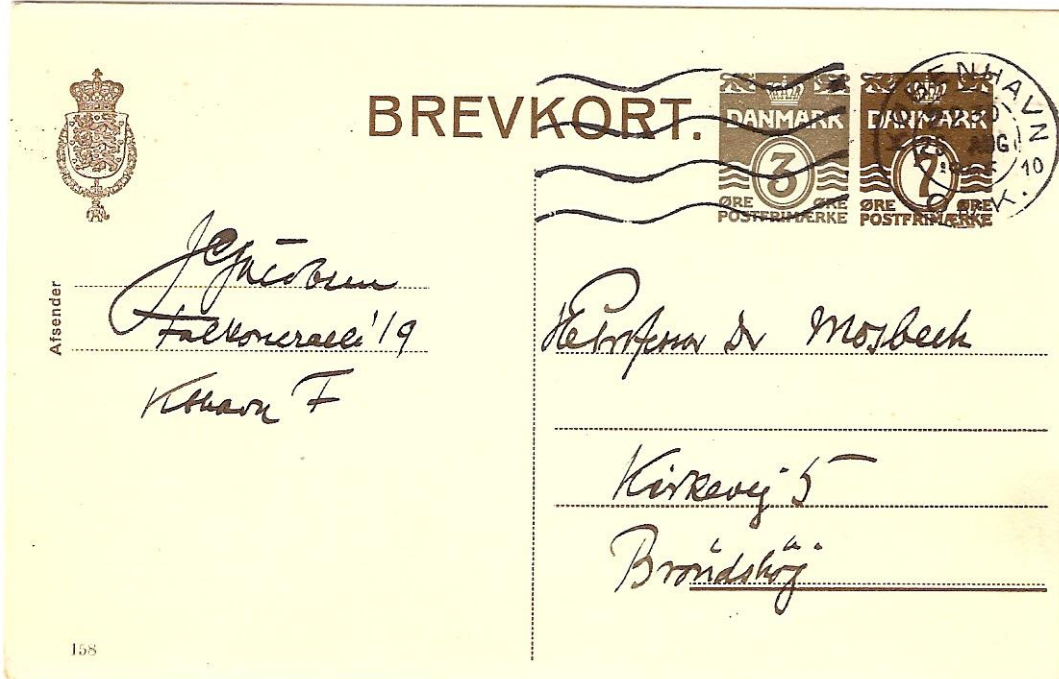 BREVKORT.
DANMARK
3
ØRE ØRE
POSTFRIMÆRKE
DANMARK
7
ØRE ØRE
POSTFRIMÆRKE
KØBENHAVN
AUG
10
OMK.
Afsender
JCJacobsen
Falkoneralle 19
Kbhavn F
Professor Dr Mosbech
Kirkevej 5
Bröndshöj
158